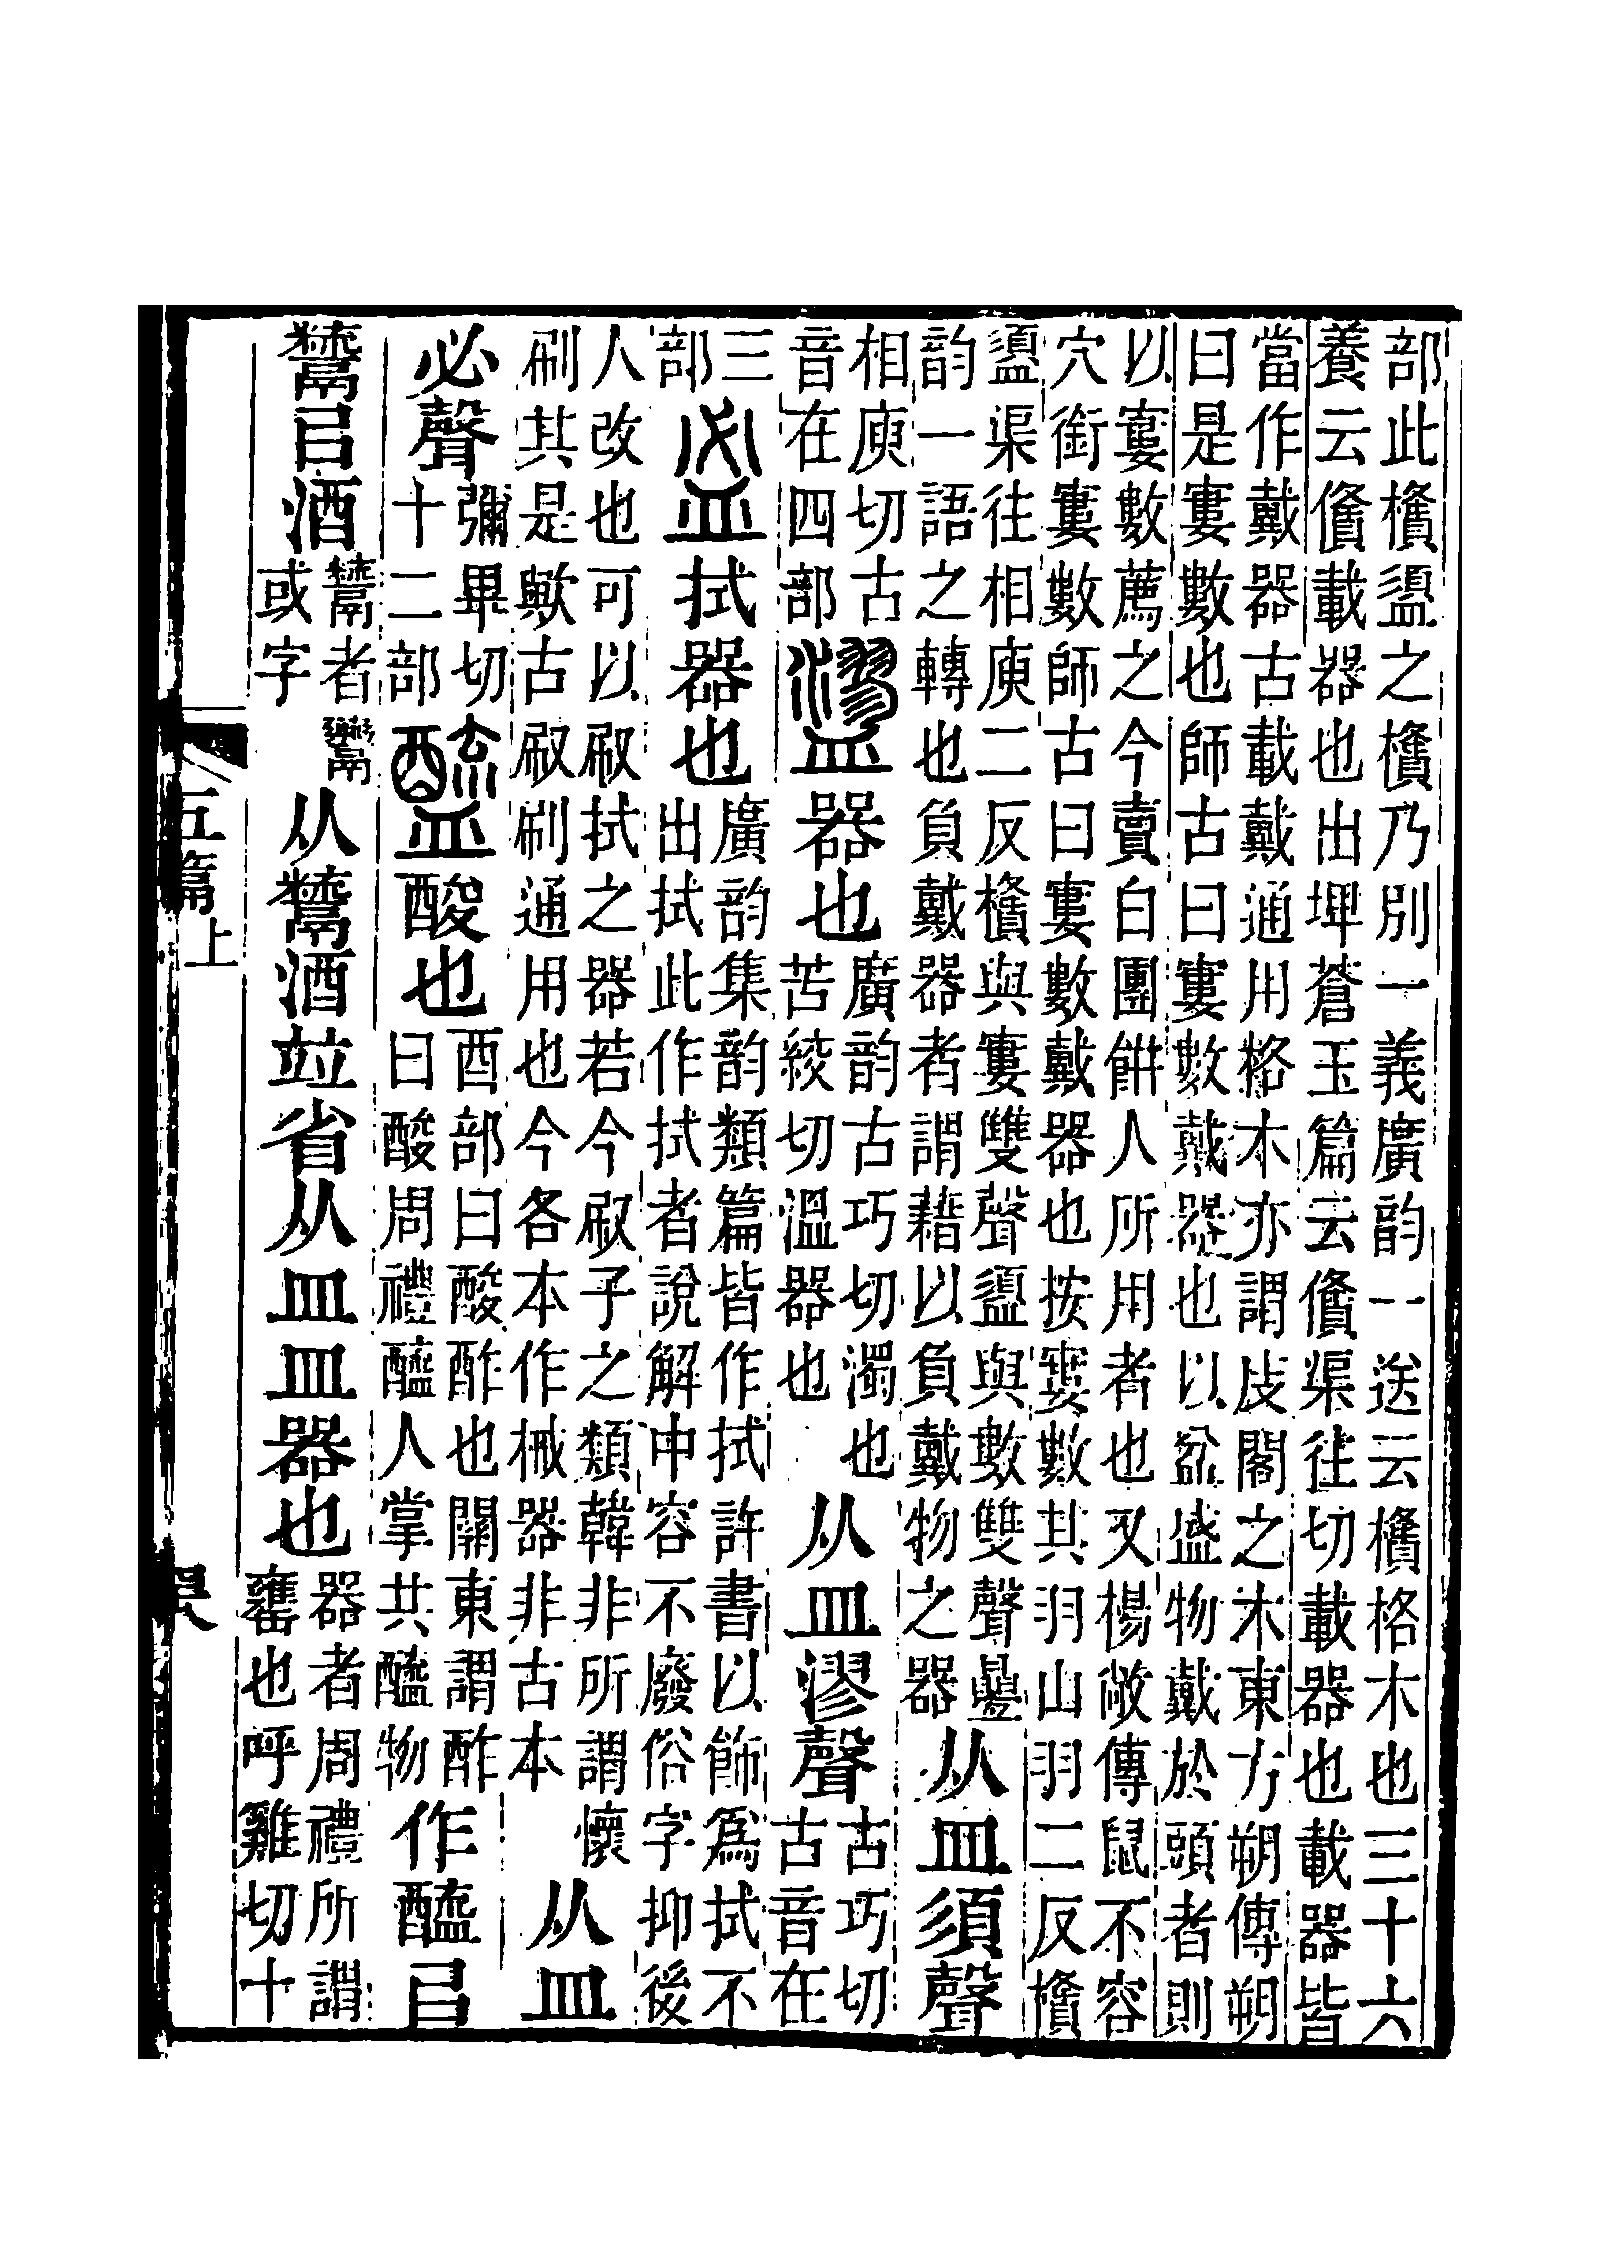 部此盨之乃別一義廣韵一送云格木也三十六
養云載器也出埤蒼玉篇云渠往切載器也載器皆
當作戴器古載戴通用格木亦謂庋閣之木東方朔傳朔
曰是寠數也師古曰寠數戴器也以盆盛物戴於頭者則
以寠數薦之今賣白團餠人所用者也又楊敞傳鼠不容
穴銜寠數師古曰寠數戴器也按寠數其羽山羽二反
盨渠往相庾二反與寠雙聲盨與數雙聲曡
韵一語之轉也負戴器者謂藉以負戴物之器
从皿須聲
相庾切古
音在四部
器也
廣韵古巧切濁也
苦絞切溫器也
从皿漻聲
古巧切
古音在
三
部
拭器也
廣韵集韵類篇皆作拭許書以飾爲拭不
出拭此作拭者說解中容不廢俗字抑後
人改也可以㕞拭之器若今㕞子之類韓非所謂懷
刷其是歟古㕞刷通用也今各本作械器非古本
从皿
必聲
彌畢切
十二部
醯酸也
酉部曰酸酢也關東謂酢
曰酸周禮醯人掌共醯物
作醯㠯
鬻㠯酒
鬻者
或字
从鬻酒竝省从皿皿器也
器者周禮所謂
罋也呼雞切十
五篇上